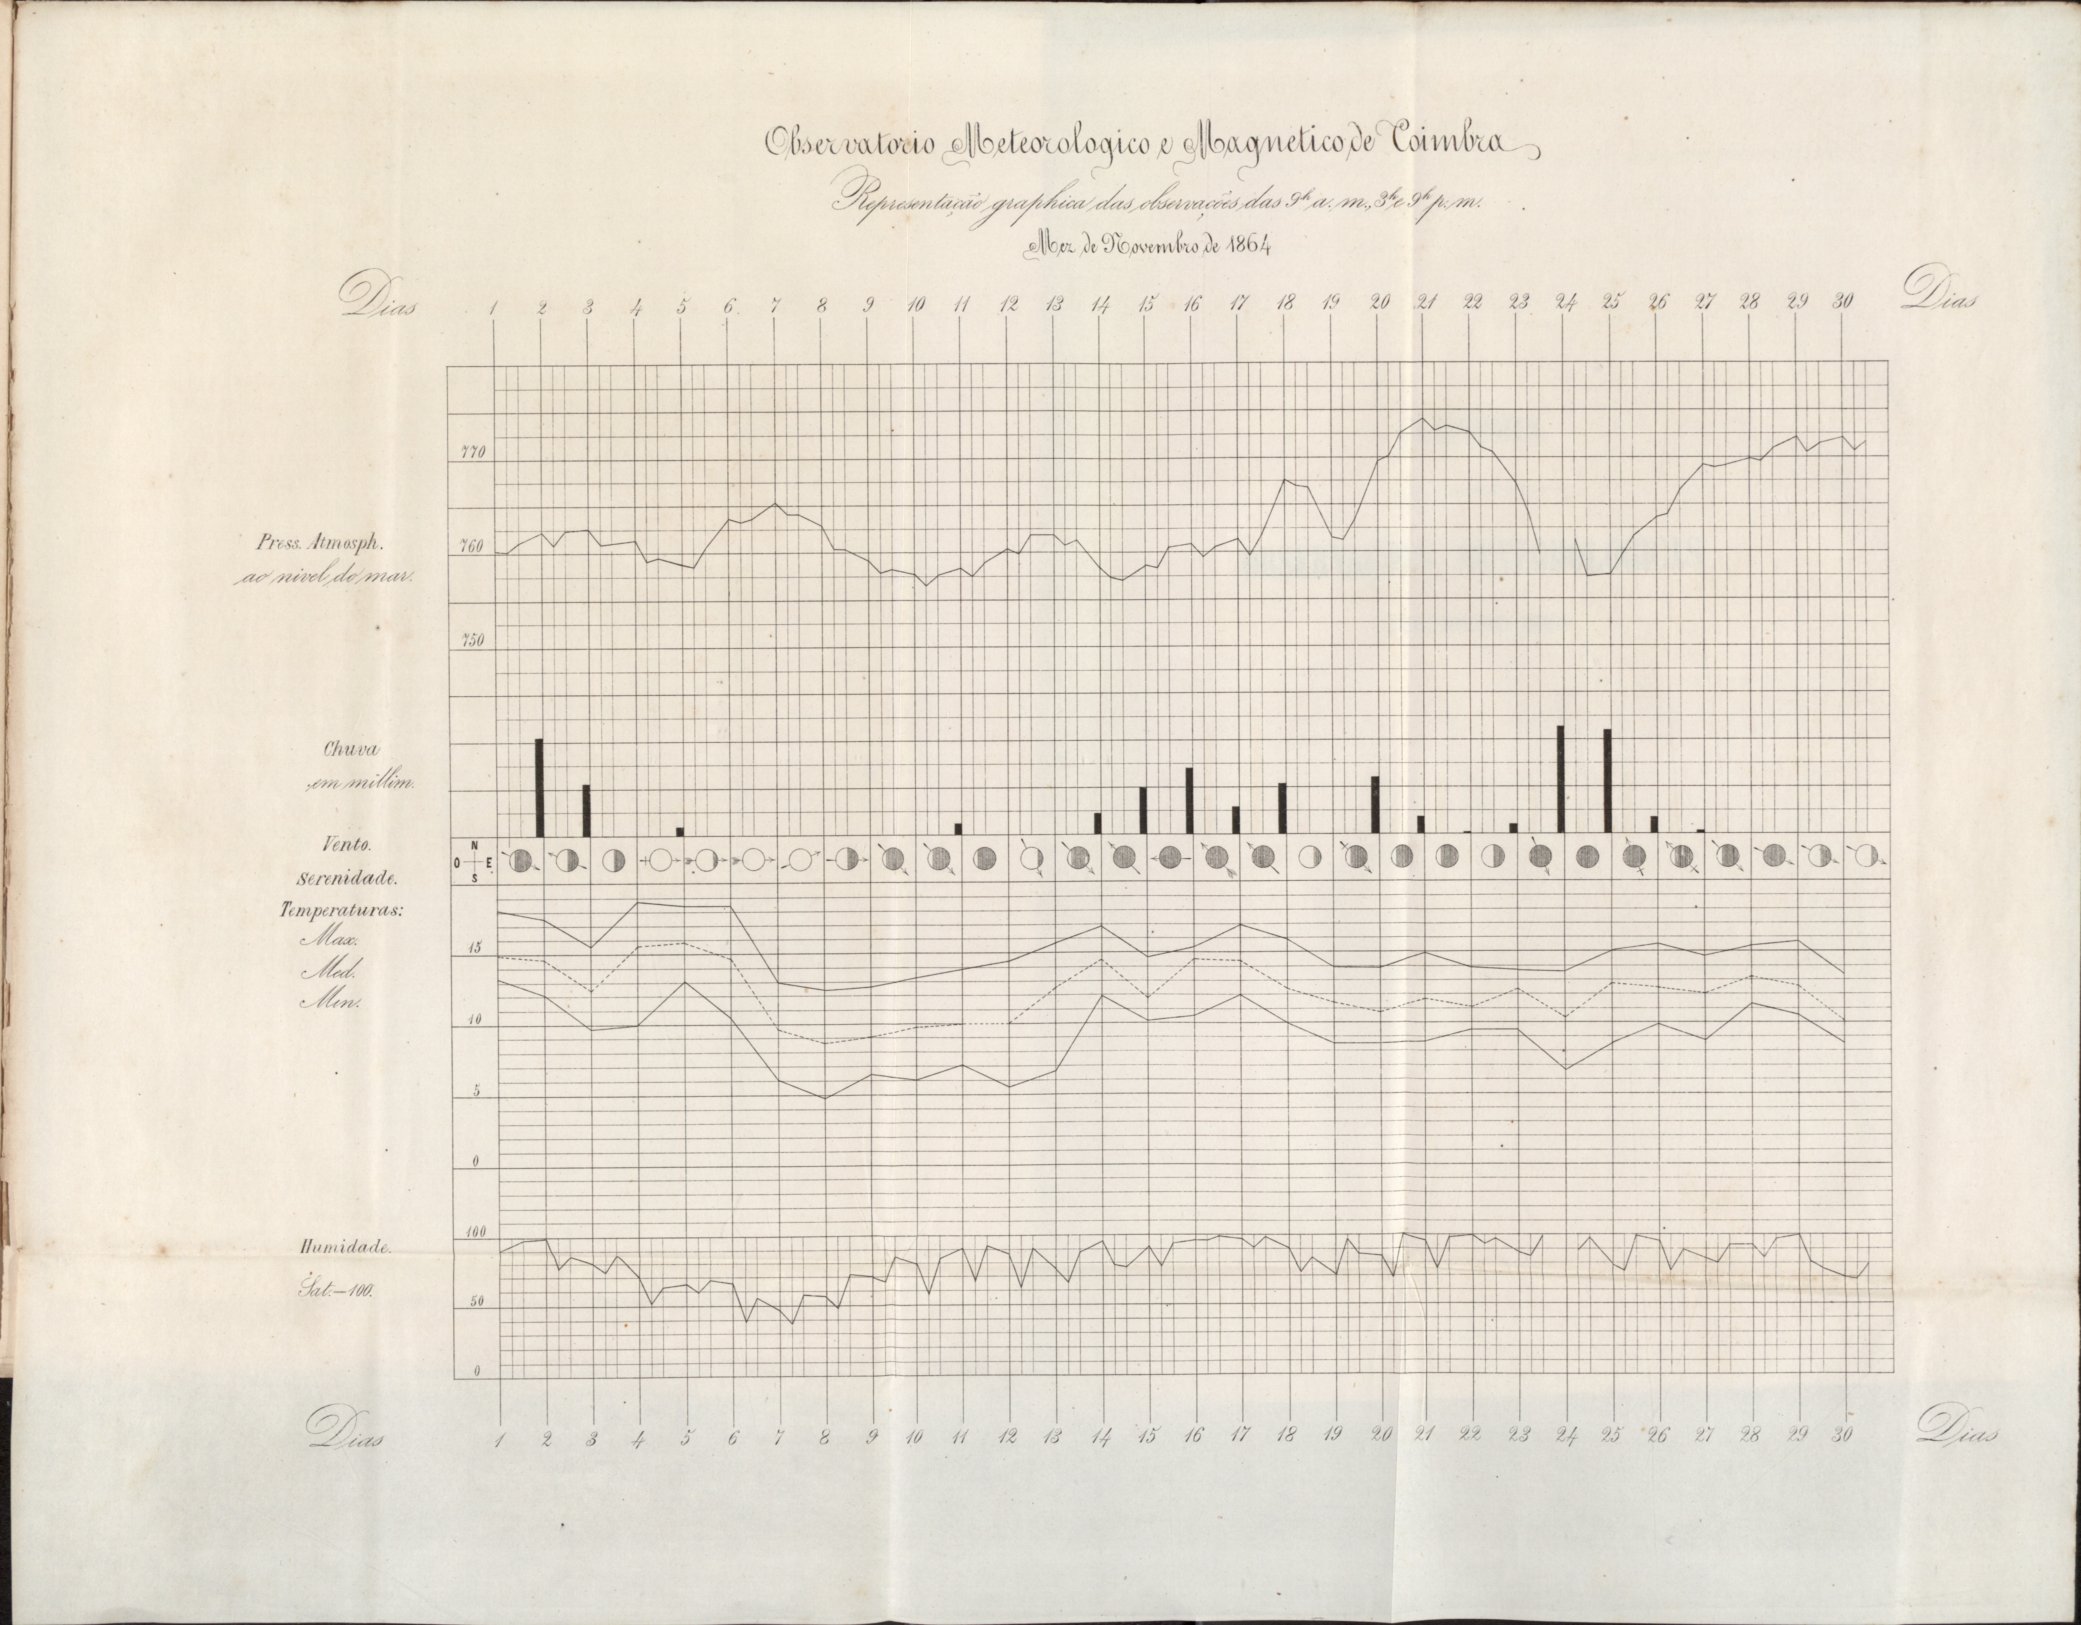 Observatorio Meteorologico e Magnetico de Coimbra
Representação graphica das observações das 9h a. m., 3h e 9h p. m.
Mez de Novembro de 1864
Dias 1 2 3 4 5 6 7 8 9 10 11 12 13 14 15 16 17 18 19 20 21 22 23 24 25 26 27 28 29 30 Dias
770
Press. Atmosph. 760
ao nivel do mar.
750
Chuva
em millim.
Vento. N
O E.
Serenidade. S
Temperaturas:
Max. 15
Med.
Min.
10
5
0
100
Humidade.
Sat.—100.
50
0
Dias 1 2 3 4 5 6 7 8 9 10 11 12 13 14 15 16 17 18 19 20 21 22 23 24 25 26 27 28 29 30 Dias